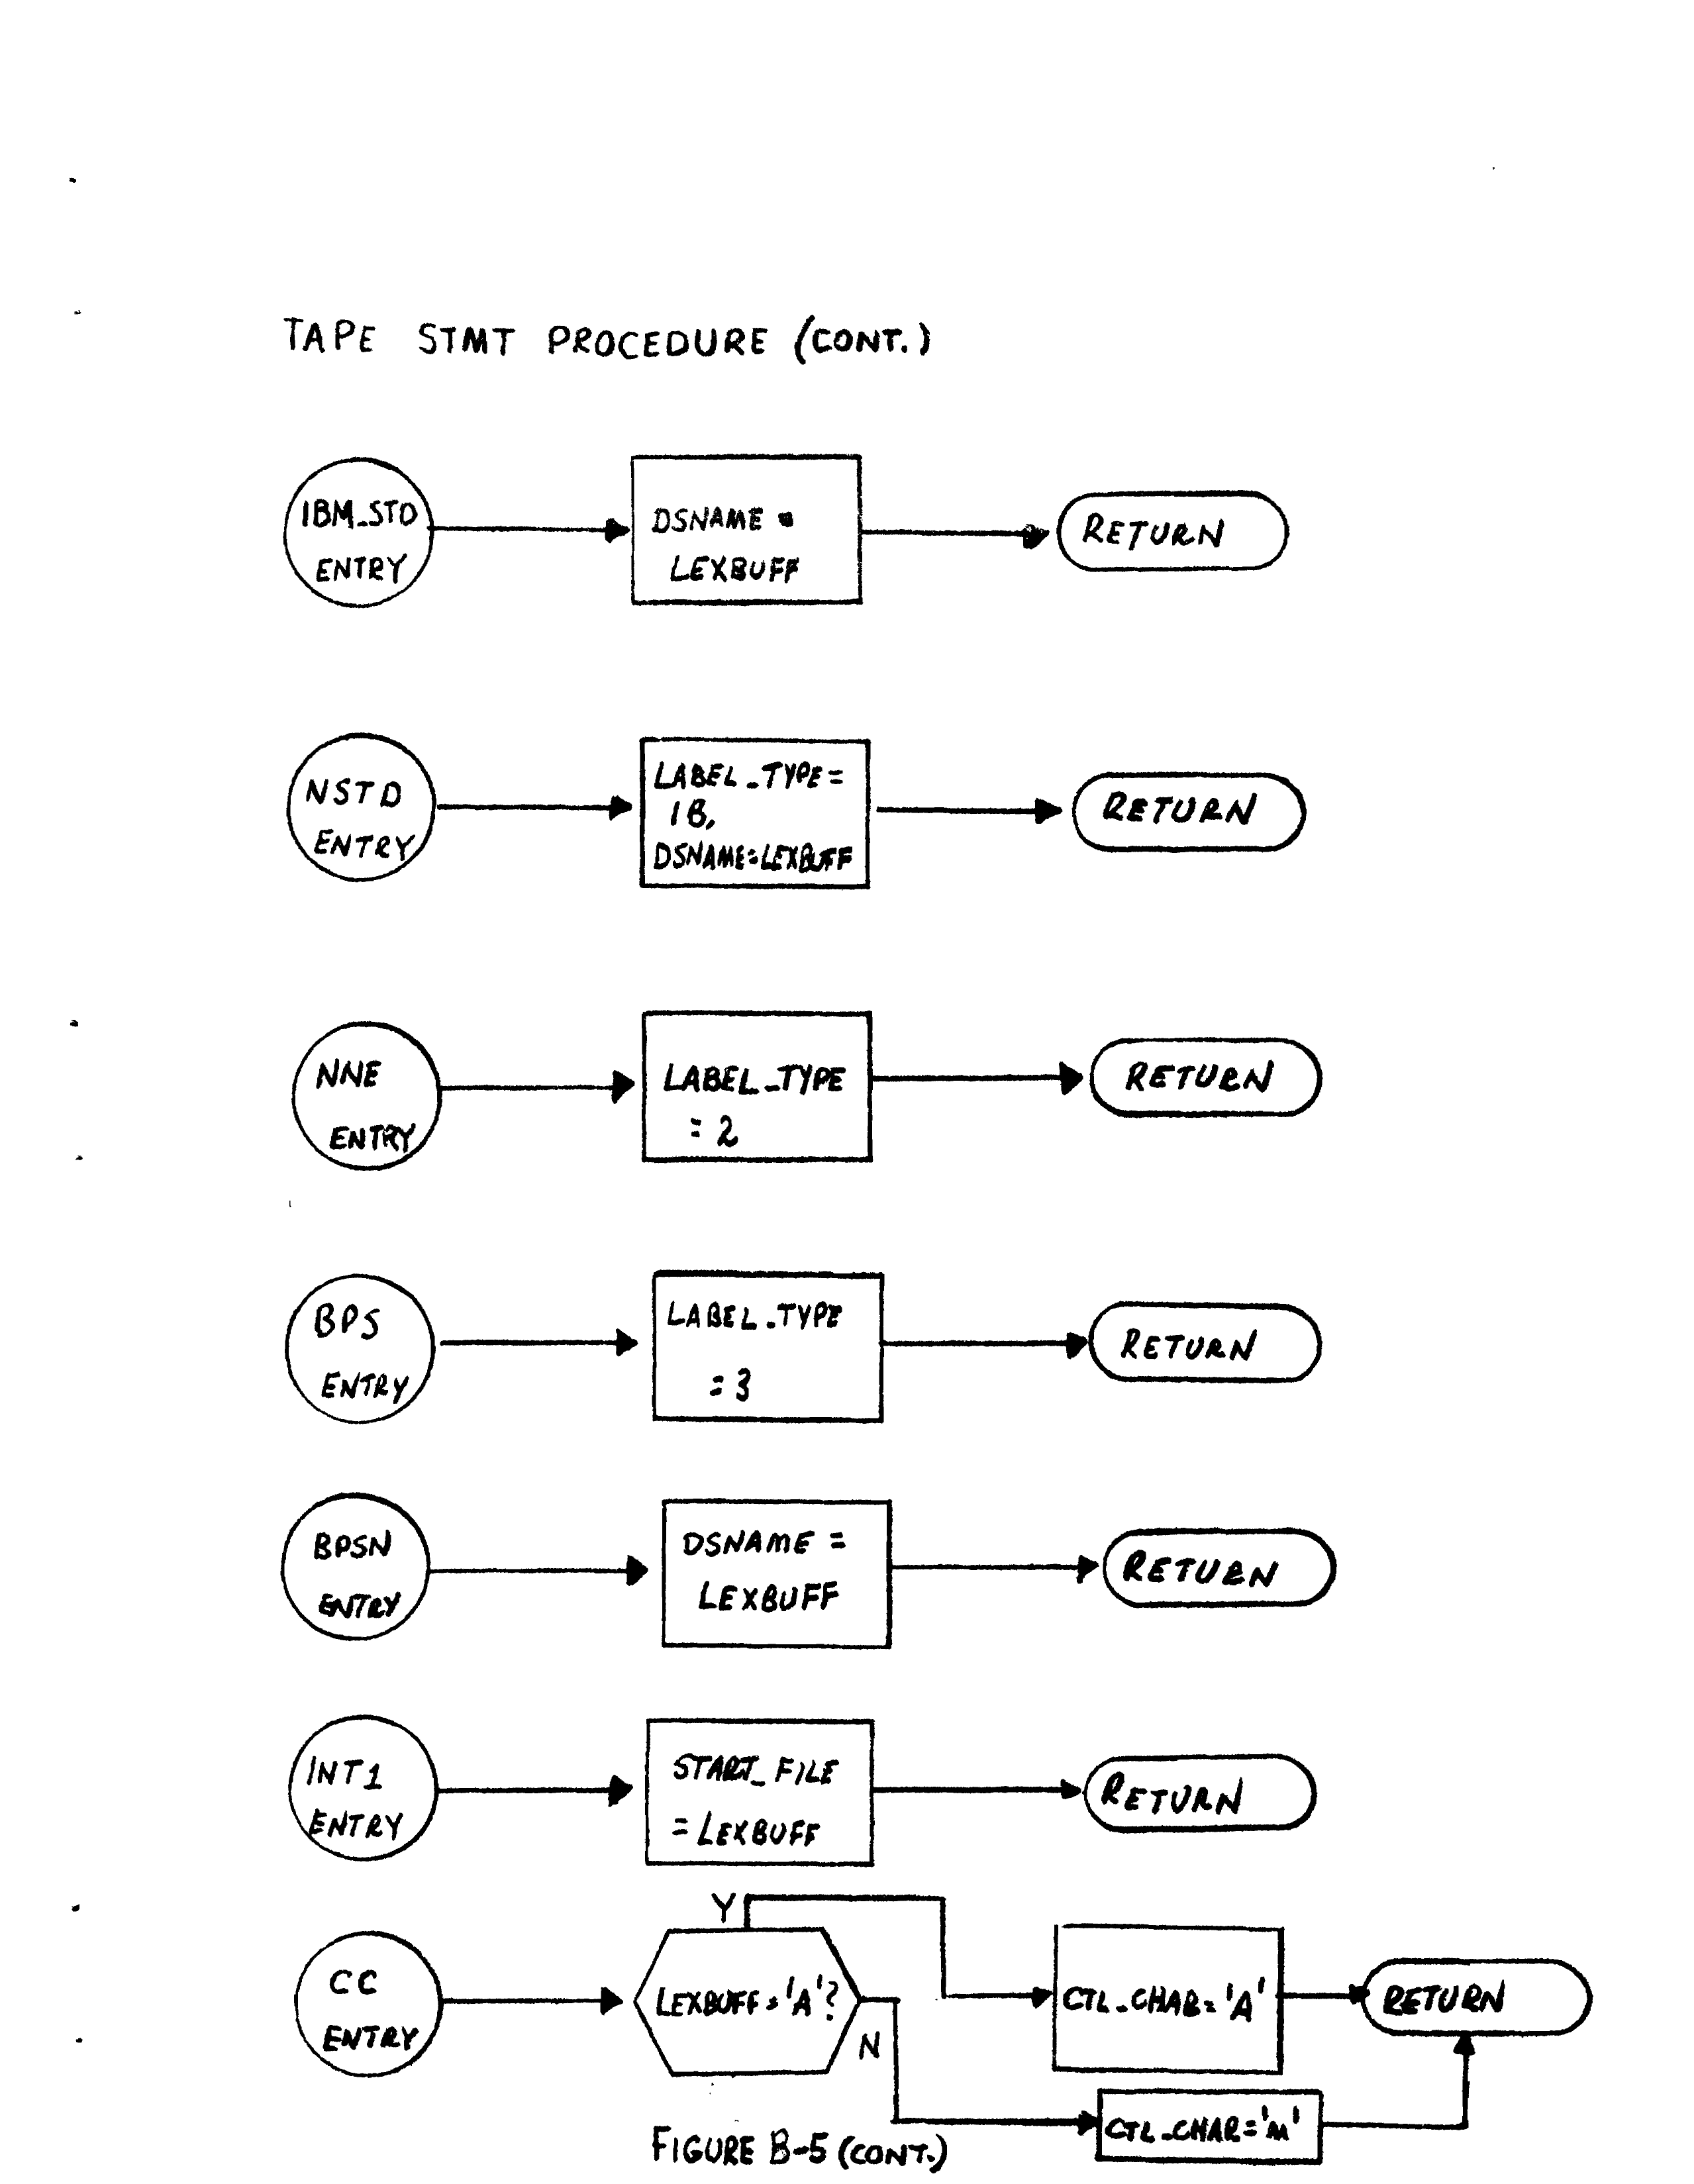 TAPE STMT PROCEDURE (CONT.)
IBM_STD
ENTRY
DSNAME =
LEXBUFF
RETURN
NSTD
ENTRY
LABEL_TYPE=
1B,
DSNAME=LEXBUFF
RETURN
NNE
ENTRY
LABEL_TYPE
=2
RETURN
BPS
ENTRY
LABEL_TYPE
=3
RETURN
BPSN
ENTRY
DSNAME =
LEXBUFF
RETURN
INT1
ENTRY
START_FILE
= LEXBUFF
RETURN
CC
ENTRY
LEXBUFF='A'?
Y
N
CTL_CHAR='A'
RETURN
CTL_CHAR='M'
FIGURE B-5 (CONT.)